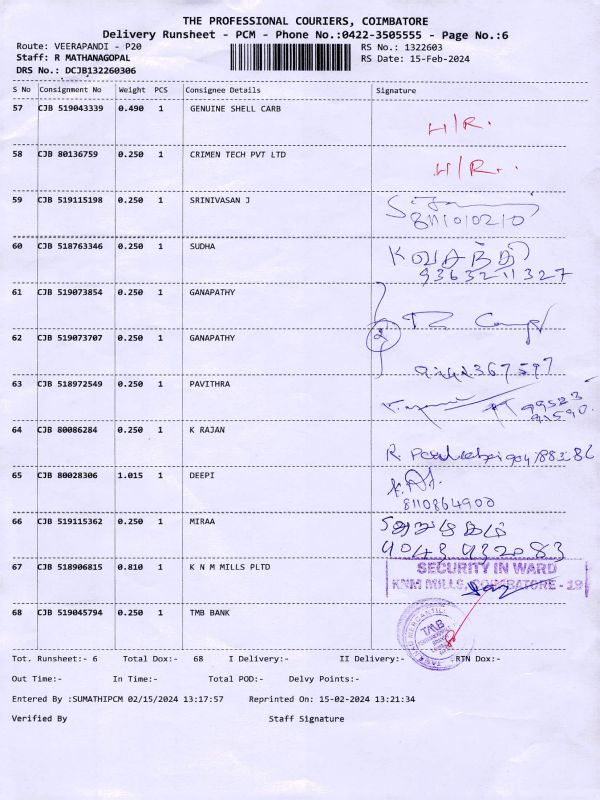 THE PROFESSIONAL COURIERS, COIMBATORE
Delivery Runsheet - PCM - Phone No.:0422-3505555 - Page No.:6
Route: VEERAPANDI - P20 RS No.: 1322603
Staff: R MATHANAGOPAL RS Date: 15-Feb-2024
DRS No.: DCJB132260306
S No Consignment No Weight PCS Consignee Details Signature
57 CJB 519043339 0.490 1 GENUINE SHELL CARB H/R.
58 CJB 80136759 0.250 1 CRIMEN TECH PVT LTD H/R.
59 CJB 519115198 0.250 1 SRINIVASAN J
8111010210
60 CJB 518763346 0.250 1 SUDHA
9363211327
61 CJB 519073854 0.250 1 GANAPATHY
62 CJB 519073707 0.250 1 GANAPATHY 2
63 CJB 518972549 0.250 1 PAVITHRA
64 CJB 80086284 0.250 1 K RAJAN
65 CJB 80028306 1.015 1 DEEPI
8110864900
66 CJB 519115362 0.250 1 MIRAA
67 CJB 518906815 0.810 1 K N M MILLS PLTD SECURITY IN WARD
KNM MILLS, COIMBATORE - 19
68 CJB 519045794 0.250 1 TMB BANK
TMB
Tot. Runsheet:- 6 Total Dox:- 68 I Delivery:- II Delivery:- RTN Dox:-
Out Time:- In Time:- Total POD:- Delvy Points:-
Entered By :SUMATHIPCM 02/15/2024 13:17:57 Reprinted On: 15-02-2024 13:21:34
Verified By Staff Signature